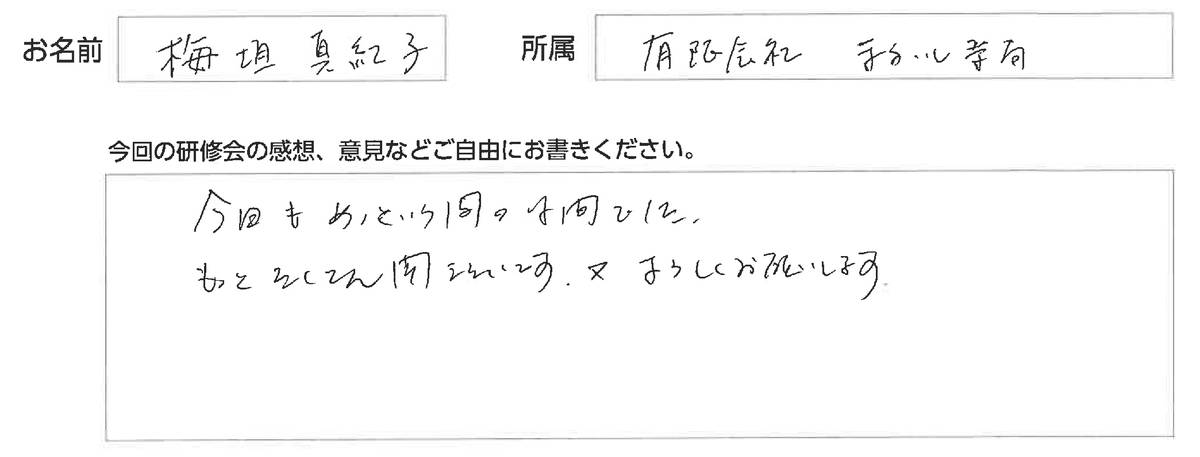 お名前 梅垣 真紀子 所属 有限会社 まるいし薬局
今回の研修会の感想、意見などご自由にお書きください。
今回もあっという間の時間でした。
もっと たくさん聞きたいです。又 よろしくお願いします。